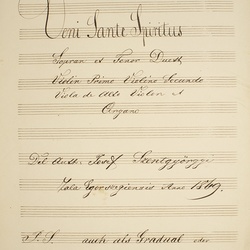 Veni Sante Spiritus
Sopran et Tenor Duett
Violin Primo Violino Secundo
Viola de Alto Violon et
Organo
Del Auth: Josef Szentgyörgyi
Zala Egerszegiensis Anno 1869.
S. S. auch als Gradual oder